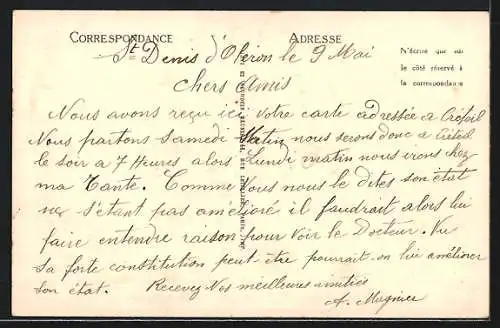 CORRESPONDANCE ADRESSE
N'écrire que sur
le côté réservé à
la correspondance
St Denis d'Oléron le 9 Mai
chers Amis
Nous avons reçu ici votre carte adressée a Créteil
Nous partons samedi Matin nous serons donc a Créteil
le soir a 7 Heures alors Lundi matin nous irons chez
ma Tante. Comme Vous nous le dites son état
ne s'étant pas amélioré il faudrait alors lui
faire entendre raison pour Voir le Docteur. Vu
sa forte constitution peut-être pourrait-on lui améliorer
son état. Recevez Nos meilleures amitiés
A. Magnier